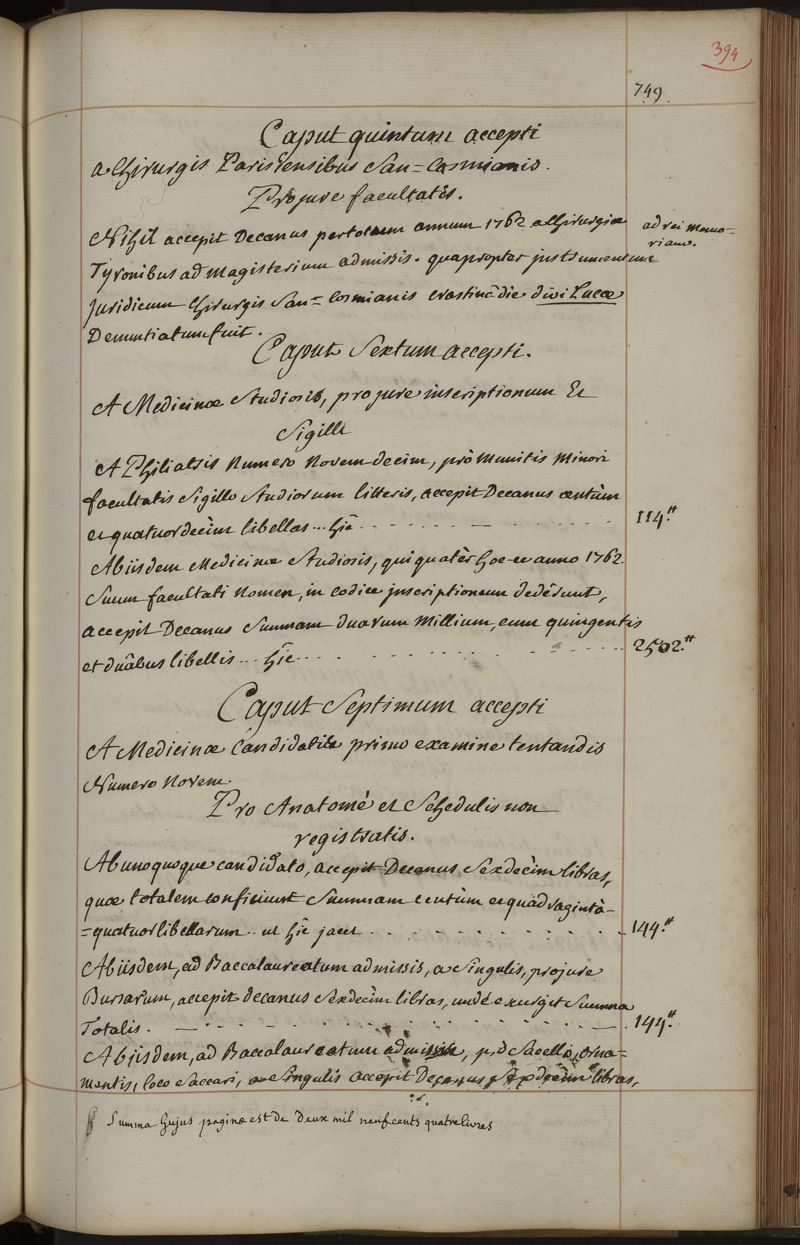 394
749.
Caput quintum accepti
a Chirurgis Parisiensibus San=Cosmianis.
Pro jure facultatis.
Nihil accepit Decanus per totum annum 1762 a Chirurgiæ
ad rei memo=
riam.
Tyronibus ad magisterium admissis. quapropter instrumentum
juridicum Chirurgis San=Cosmianis crastinâ die divi Lucæ
Denuntiatum fuit.
Caput Sextum accepti.
A Medicinæ Studiosis, pro jure inscriptionum Et
Sigilli
A Philiatris Numero Novem-decim, prò munitis minori
facultatis Sigillo Studiorum litteris, accepit Decanus centùm
et quatuordecim libellas... hîc
114.ᵗᵗ
Ab iisdem Medicinæ Studiosis, qui quatèr hoc-ce anno 1762.
Suum facultati Nomen, in codice inscriptionum dedêrunt,
accepit Decanus Summam duorum Millium, cum quingentis
et duâbus libellis... hîc
2502.ᵗᵗ
Caput Septimum accepti
A Medicinæ Candidatis primo examine tentandis
Numero Novem.
Pro Anatomê et Schedulis non
registratis.
Ab unoquoque candidato, accepit Decanus Sexdecim libras,
quæ totalem conficiunt Summam centùm et quadragintà=
=quatuor libellarum.. ut hîc jacet
144.ᵗᵗ
Ab iisdem, ad Baccalaureatum admissis, a Singulis, pro jure
Bursarum, accepit decanus Sexdecim libras, undè exurget Summa
Totalis.
144.ᵗᵗ
Ab iisdem, ad Baccalaureatum admissis, prò Sacello, orna=
mentis, loco Saccari, a Singulis accepit Decanus Sexdecim libras,
Summa hujus paginæ est de Deux mil neufcents quatre livres